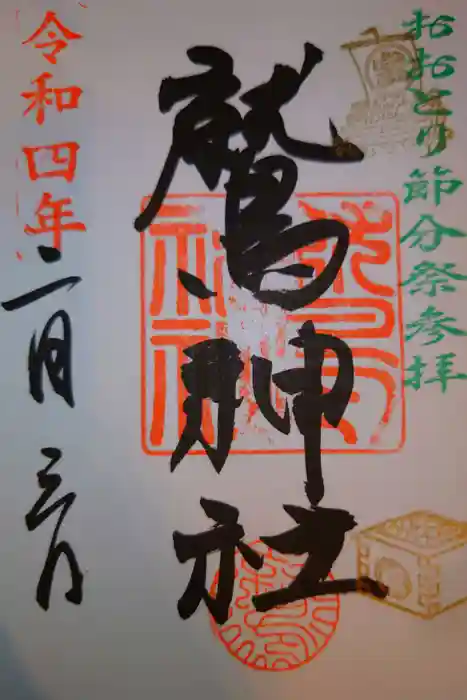 おおとり節分祭参拝
鷲神社
令和四年
二月三日